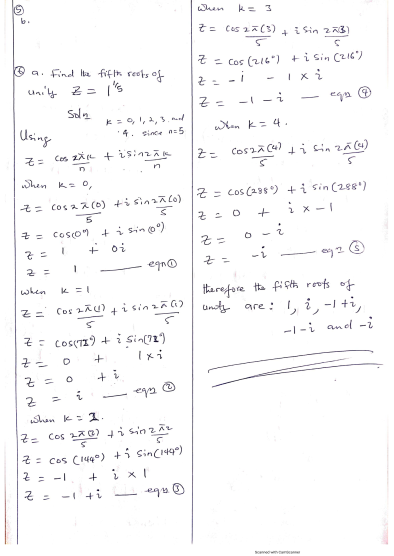 ⑤
b.
⑥ a. Find the fifth roots of
unity Z = 1^1/5
Soln
k = 0, 1, 2, 3 and
4. since n=5
Using
Z = cos 2πk/n + i sin 2πk/n
When k = 0,
Z = cos 2π(0)/5 + i sin 2π(0)/5
Z = cos(0°) + i sin(0°)
Z = 1 + 0i
Z = 1 —— eqn ①
when k = 1
Z = cos 2π(1)/5 + i sin 2π(1)/5
Z = cos(72°) + i sin(72°)
Z = 0 + 1 x i
Z = 0 + i
Z = i —— eqn ②
when k = 2.
Z = cos 2π(2)/5 + i sin 2π2/5
Z = cos (144°) + i sin(144°)
Z = -1 + i x 1
Z = -1 + i —— eqn ③
when k = 3
Z = cos 2π(3)/5 + i sin 2π3/5
Z = cos(216°) + i sin(216°)
Z = -i - 1 x i
Z = -1 - i —— eqn ④
when k = 4.
Z = cos2π(4)/5 + i sin 2π(4)/5
Z = cos(288°) + i sin(288°)
Z = 0 + i x -1
Z = 0 - i
Z = -i —— eqn ⑤
therefore the fifth roots of
unity are: 1, i, -1+i,
-1-i and -i
Scanned with CamScanner